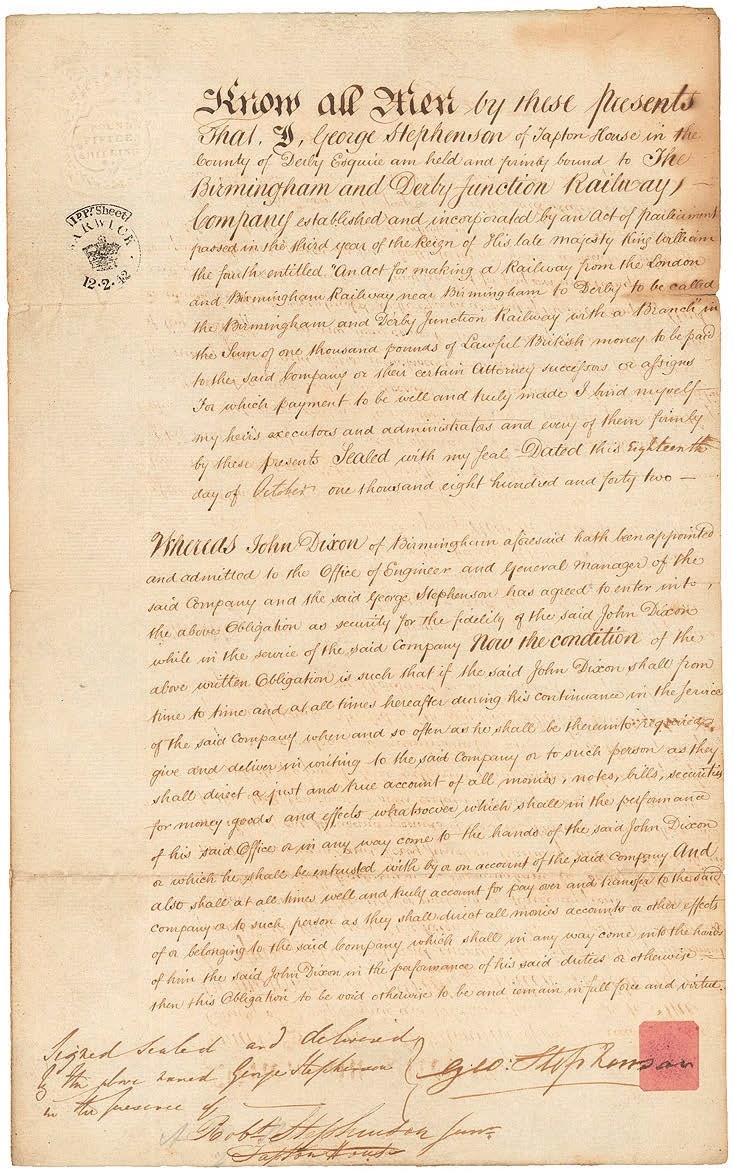 Know all Men by these presents
That, I, George Stephenson of Tapton House in the
County of Derby Esquire am held and firmly bound to The
Birmingham and Derby Junction Railway
Company established and incorporated by an Act of parliament
passed in the third year of the Reign of His late majesty King William
the fourth entitled "An act for making a Railway from the London
and Birmingham Railway near Birmingham to Derby to be called
the Birmingham and Derby Junction Railway with a Branch" in
the Sum of one thousand pounds of Lawful British money to be paid
to the said Company or their certain Attorney successors or assigns
For which payment to be well and truly made I bind myself
my heirs executors and administrators and every of them firmly
by these presents Sealed with my seal Dated this Eighteenth
day of October one thousand eight hundred and forty two —
1 PP. Sheet
WARWICK
12·2·42
Whereas John Dixon of Birmingham aforesaid hath been appointed
and admitted to the Office of Engineer and General Manager of the
said Company and the said George Stephenson has agreed to enter into
the above Obligation as security for the fidelity of the said John Dixon
while in the service of the said Company Now the condition of the
above written Obligation is such that if the said John Dixon shall from
time to time and at all times hereafter during his continuance in the Service
of the said Company when and so often as he shall be thereunto required
give and deliver in writing to the said Company or to such person as they
shall direct a just and true account of all monies, notes, bills, securities
for money goods and effects whatsoever which shall in the performance
of his said Office or in any way come to the hands of the said John Dixon
or which he shall be entrusted with by or on account of the said Company And
also shall at all times well and truly account for pay over and transfer to the said
Company or to such person as they shall direct all monies accounts or other effects
of or belonging to the said Company which shall in any way come into the hands
of him the said John Dixon in the performance of his said duties or otherwise —
then this Obligation to be void otherwise to be and remain in full force and virtue.
Signed sealed and delivered
by the above named George Stephenson
in the presence of
Geo: Stephenson
Robt Stephenson Junr
Tapton House